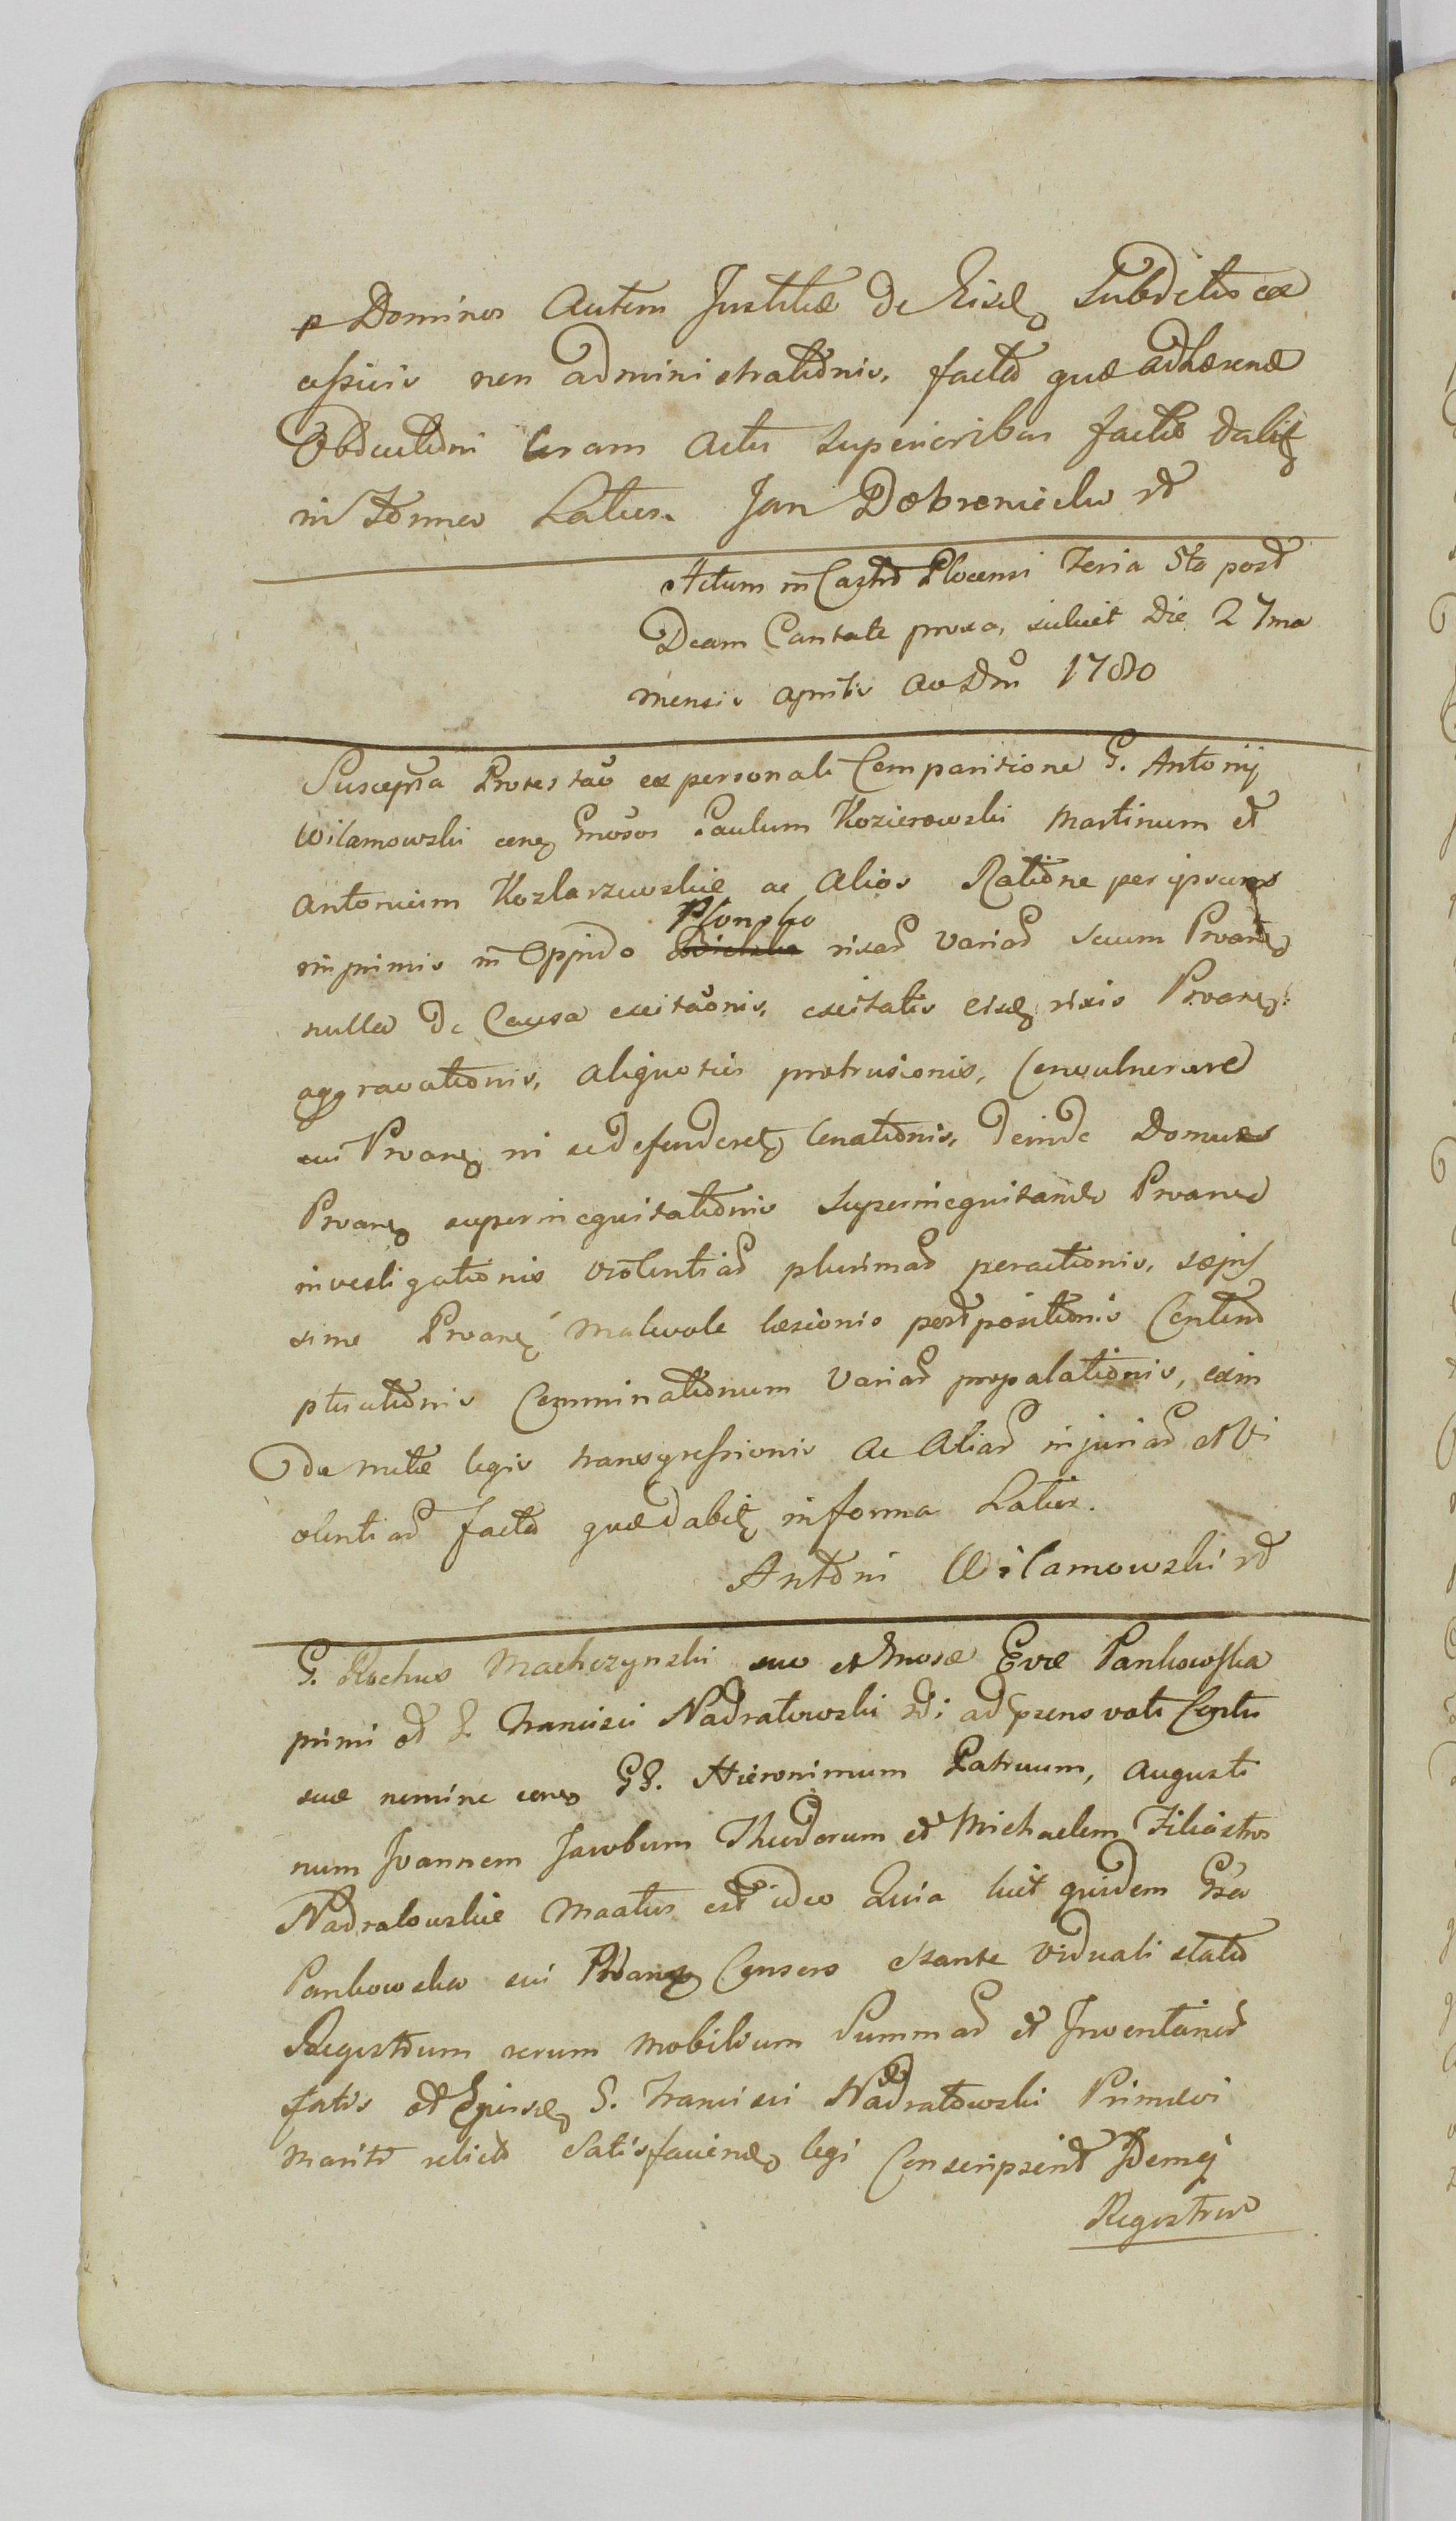 p Dominos Autem Justitiæ de Eisdẽ Subditis ex
cessivis non administrationis, facta quæ adhærend
Obductioni coram Actis superioribus factæ dabit
in Forma Latius. Jan Dobrzenicki rd
Actum in Castro Plocensi Feria 5ta post
Dcam Cantate proxa, scilicet Die 27ma
mensis aprilis Ao Dni 1780
Suscepta Protestao ex personali Comparitione G. Antonij
Wilamowski cong Gnosos Paulum Kozierowski Martinum et
Antonium Kozlarzewskie ac Alios Ratione per ipsum
inprimis in Oppido Plonsko rixar Variar secum Protan
nulla de Causa excitaonis, excitatis eisdẽ rixis Protan
aggravationis, aliquoties protrusionis, Convulnerare
cui Protan ni se defenderet Conationis, deinde Domus
Protan superinequitationis Superinequitando Protane
investigationis violentiar plurimar peractionis, sæpis
sime Protan malevole læsionis postpositionis Contem
ptuationis Comminationum Variar propalationis, exin
de mulctæ legis transgressionis ac Aliar injuriar et Vi
olentiar facta quæ dabit in forma Latius.
Antoni Wilamowski rd
G. Rochus Machczynski suo et Gnosæ Evæ Pankowska
primi et G. Francisci Nadratowski 2di ad præsens voti Contis
suæ nomine cong GG. Hieronimum Patruum, Augusti
num Joannem Jacobum Theodorum et Michaelem Filiastros
Nadratowskie Maatus est ideo Quia licet quidem Gsa
Pankowska sui Protan Consors extante Viduali statu
Registrum rerum mobilium Summar et Inventarior
fatis et Ejusdẽ G. Francisci Nadratowski Primævi
Mariti relicto Satisfaciendo legi Conscripserit Idemq
Registrum